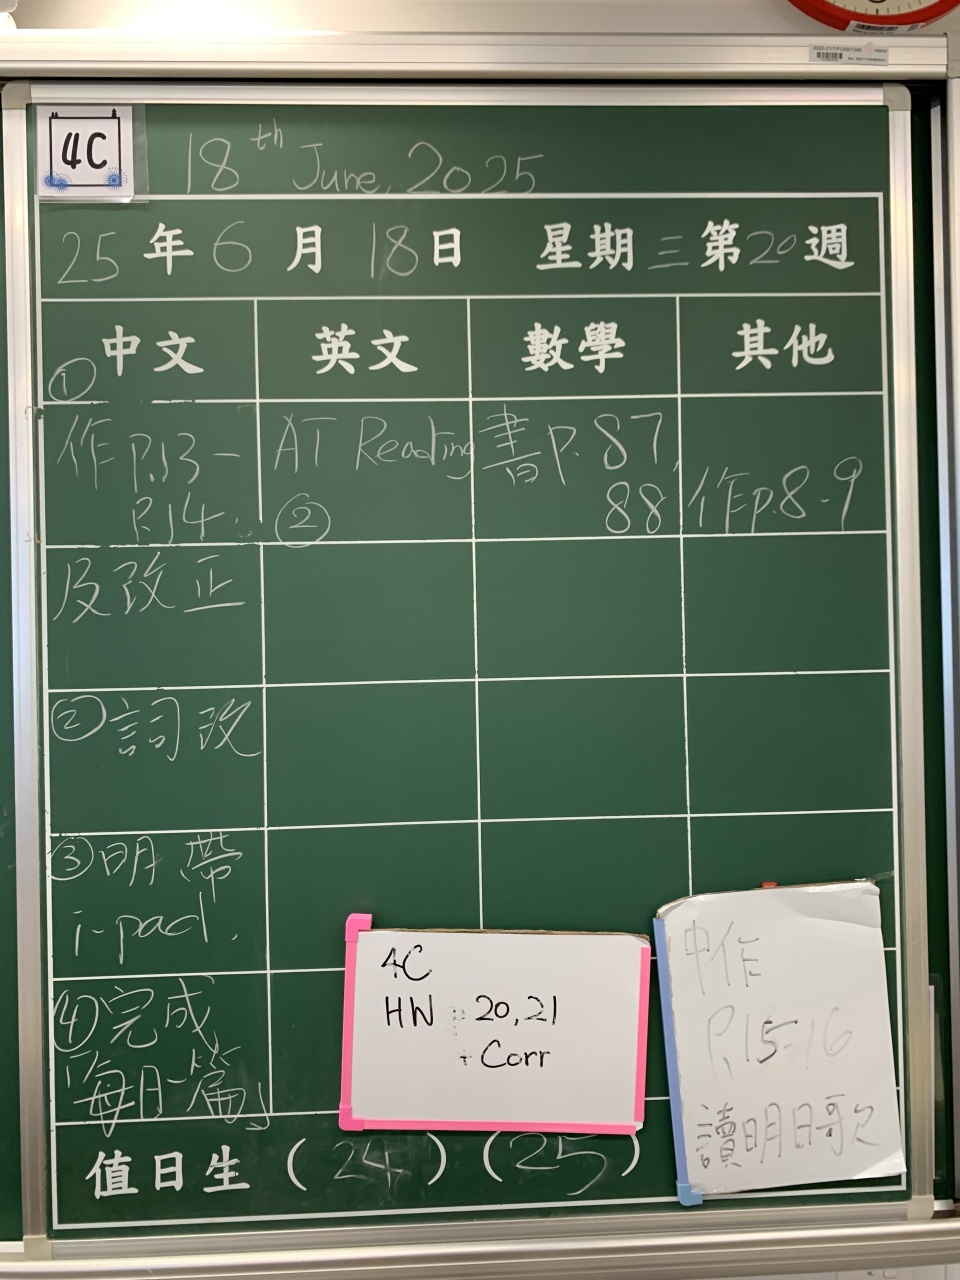 4C
18th June, 2025
25年6月18日 星期三第20週
中文 英文 數學 其他
①
作P.13-
P.14.
AT Reading
②
書p.87,
88
作p.8-9
及改正
②詞改
③明帶
i-pad.
④完成
「每月一篇」
4C
HW : 20,21
+ Corr
中作
P.15-16
讀明日歌
值日生 (24) (25)